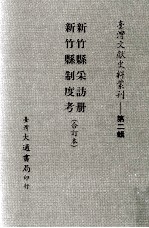 臺灣文獻史料叢刊——第二輯
新竹縣采訪冊
新竹縣制度考
(合訂本)
臺灣大通書局印行